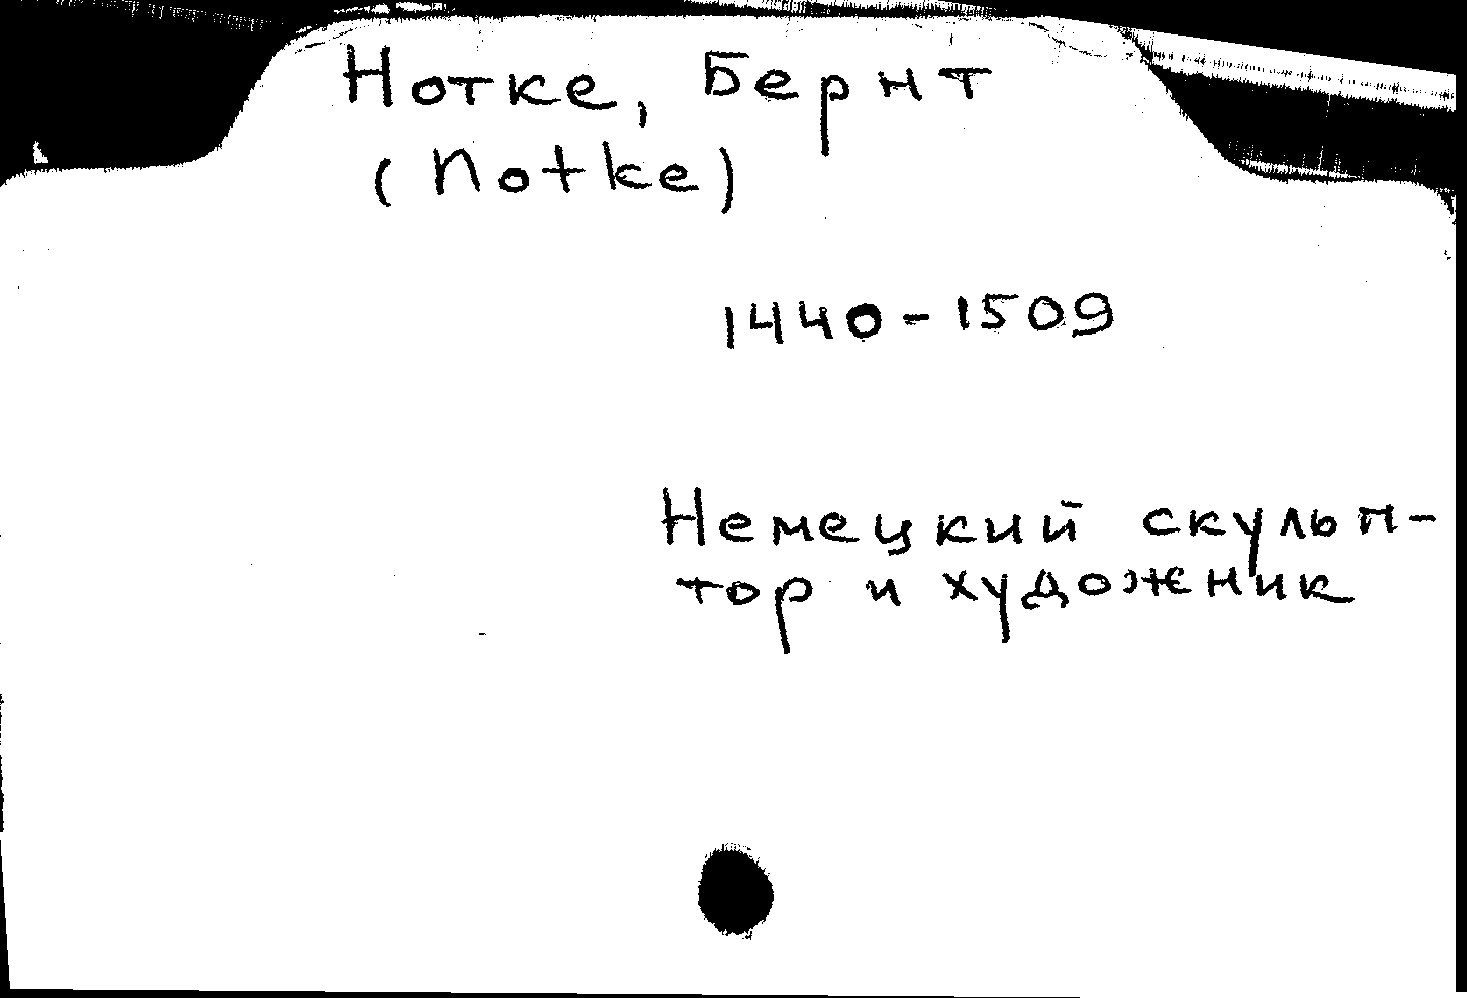 Нотке, Бернт
(Notke)
1440-1509
Немецкий скульп-
тор и художник